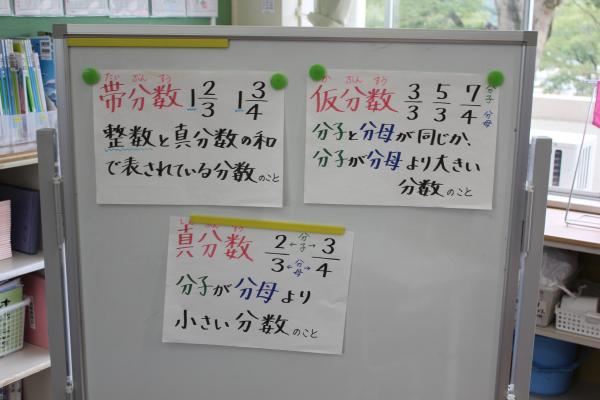 たい ぶん すう
帯分数 1 2/3 1 3/4
整数と真分数の和
で表されている分数のこと
か ぶん すう
仮分数 3/3 5/3 7/4 分子 分母
分子と分母が同じか、
分子が分母より大きい
分数のこと
しん ぶん すう
真分数 2/3 ←分子→ ←分母→ 3/4
分子が分母より
小さい分数のこと